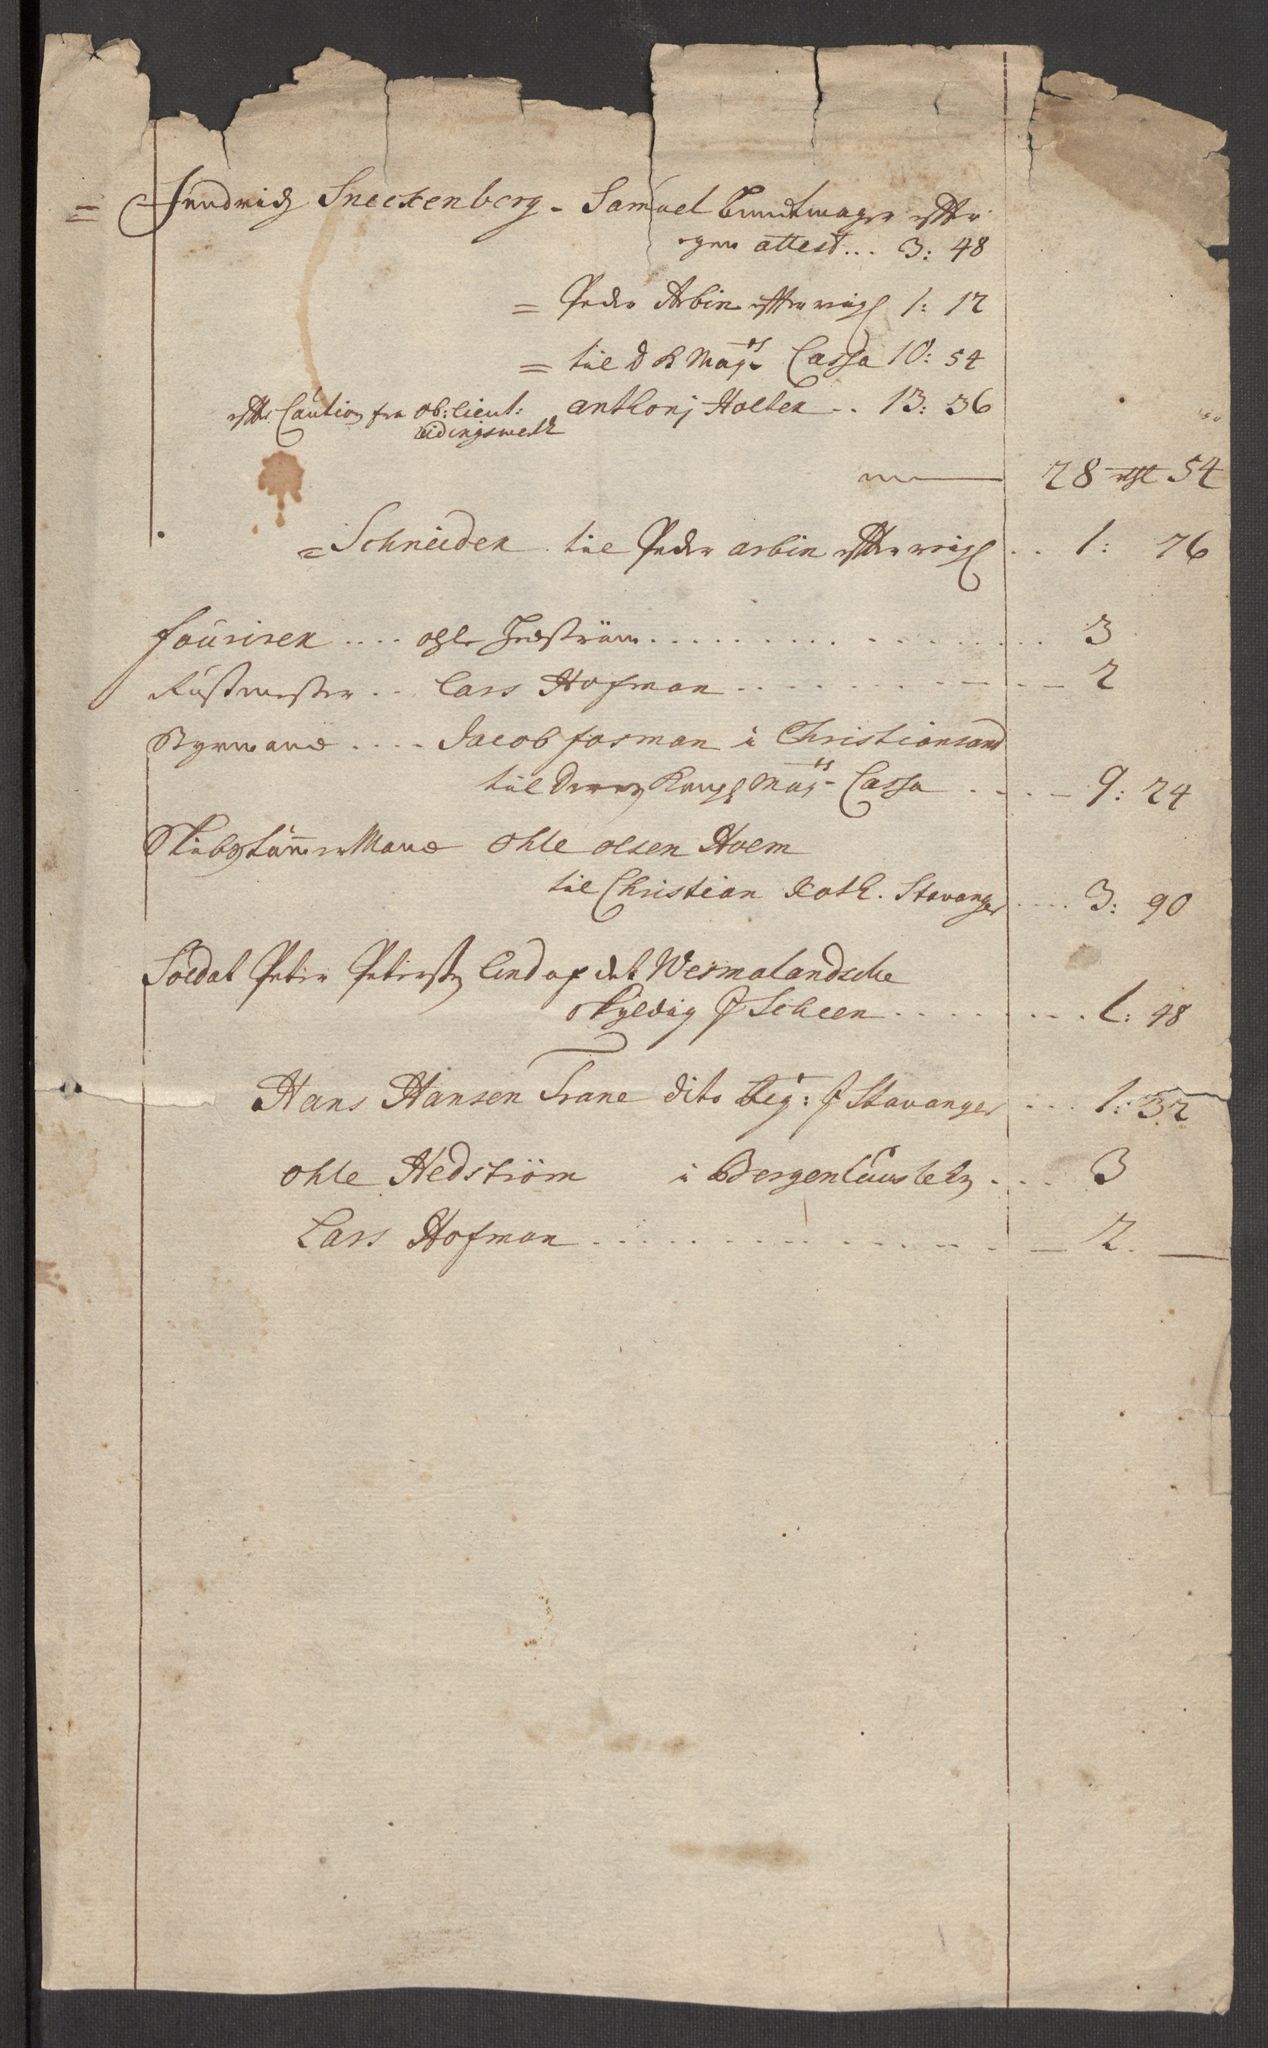 = Fendrich Sneckenberg - Samuel Buntmager effter
egen attest... 3: 48
= Peder Arbin effter 1: 12
= til D K May:ts Cassa 10: 54
effter Caution fra Ob: Lieut: anthonj Holter .. 13: 36
28 rest 54
= Schneider til Peder arbin effter .. 1: 76
fourirer .... ohle Hedström .......... 3
Rustmester .. Lars Hofman .......... 2
Styrmand .... Jacob fasman i Christiansand
til Deres Kongl May:ts Cassa .... 9: 24
Skibstømmermand Ohle olsen Holm
til Christian Roth. Stavanger .... 3: 90
Soldat Peter Petersen Lind af det Wermalandsche
skyldig J Scheen ........ 1: 48
Hans Hansen Trane dito Reg: J Stavanger ... 1: 32
Ohle Hedstrøm i Bergenhuus .... 3
Lars Hofman .......... 2.